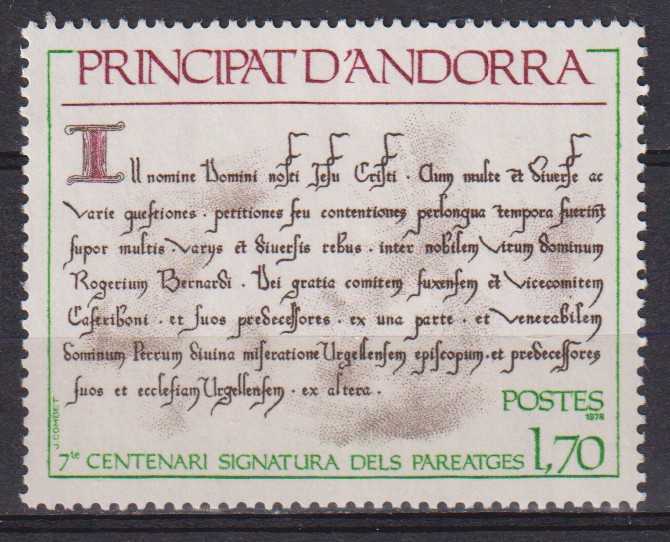 PRINCIPAT D'ANDORRA
In nomine Domini nostri Jesu Cristi · Cum multe et diverse ac
varie questiones · petitiones seu contentiones perlongua tempora fuerint
supor multis · varys et diversis rebus · inter nobilem virum dominum
Rogerium Bernardi · Dei gratia comitem fuxensem et vicecomitem
Castriboni · et suos predecessores · ex una parte · et venerabilem
dominum Petrum divina miseratione Urgellensem episcopum · et predecessores
suos et ecclesiam Urgellensem · ex altera ·
POSTES
1978
7te CENTENARI SIGNATURA DELS PAREATGES 1,70
J. COMBET